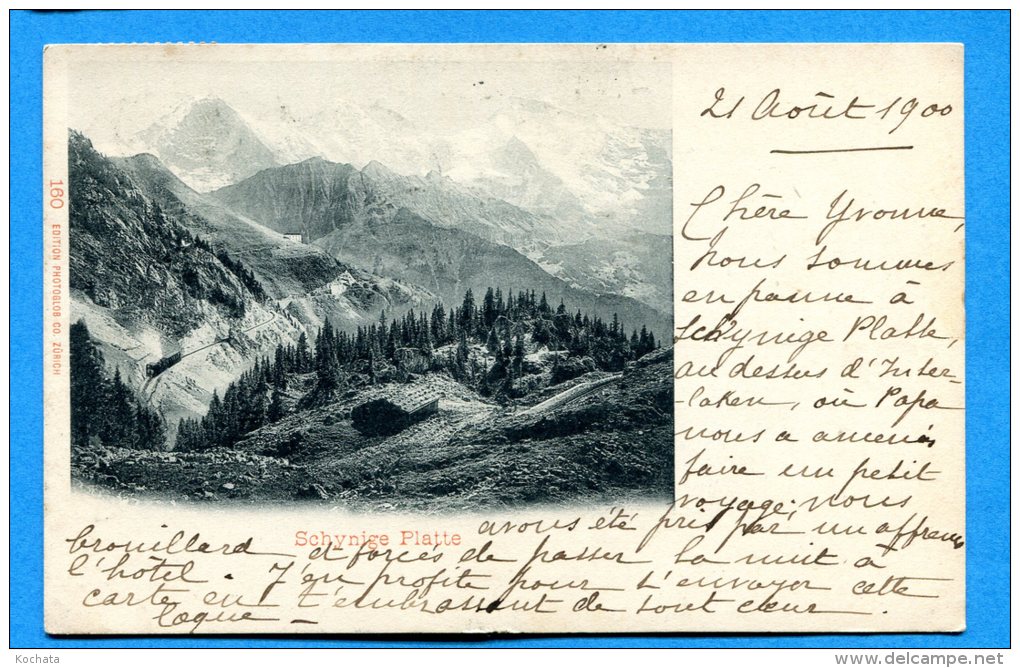 21 Août 1900
160 EDITION PHOTOGLOB CO. ZÜRICH
Chère Yvonne,
nous sommes
en panne à
Schynige Platte,
au dessus d'Inter-
-laken, où Papa
nous a amenés
faire un petit
voyage; nous
avons été pris par un affreux
Schynige Platte
brouillard et forcés de passer la nuit à
l'hôtel. J'en profite pour t'envoyer cette
carte en t'embrassant de tout cœur
Kochata
www.delcampe.net